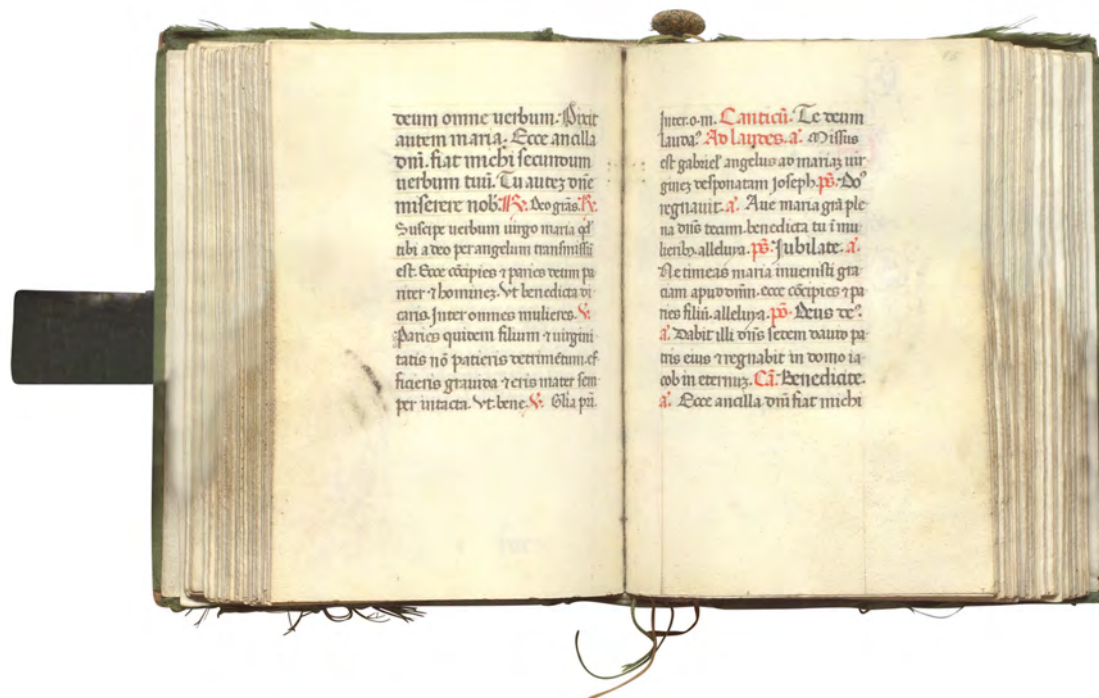 deum omne uerbum. Dixit
autem maria. Ecce ancilla
dnı̄. fiat michi secundum
uerbum tuū. Tu autez dn̄e
miserere nob̄. R̷. Deo grās. R̷.
Suscipe uerbum uirgo maria qd̓
tibi a deo per angelum transmissū
est. Ecce cōcipies ⁊ paries deum pa
riter ⁊ hominez. Vt benedicta di
caris. Inter omnes mulieres. V̷.
Paries quidem filium ⁊ uirgini
tatis nō patieris detrimētum. ef
ficieris grauida ⁊ eris mater sem
per intacta. Vt. bene. V̷. Glīa pri̅.
Inter. o. m. Canticū. Te deum
lauda᷒. Ad laudes. a᷒. Missus
est gabriel̓ angelus ad mariaz uir
ginez desponatam Joseph. ps̄. Do᷒
regnauit. a᷒. Aue maria grā ple
na dn̄s tecum. benedicta tu ī mu
lieribꝫ alleluya. ps̄. Jubilate. a᷒.
Ne timeas maria inuenisti gra
ciam apud dn̄m. ecce cōcipies ⁊ pa
ries filiū. alleluya. ps̄. Deus de᷒.
a᷒. Dabit illi dn̄s sedem dauid pa
tris eius ⁊ regnabit in domo ia
cob in eternuz. Cā. Benedicite.
a᷒. Ecce ancilla dnı̄ fiat michi